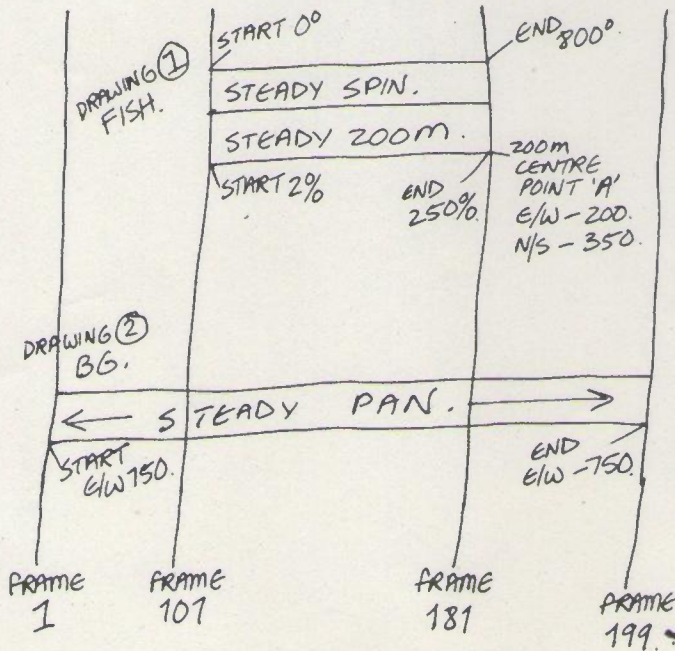 START 0°
END 800°
DRAWING ①
FISH.
STEADY SPIN.
STEADY ZOOM.
START 2%
END
250%.
ZOOM
CENTRE
POINT 'A'
E/W - 200.
N/S - 350.
DRAWING ②
BG.
STEADY PAN.
START
E/W 750.
END
E/W -750.
FRAME
1
FRAME
107
FRAME
181
FRAME
199.